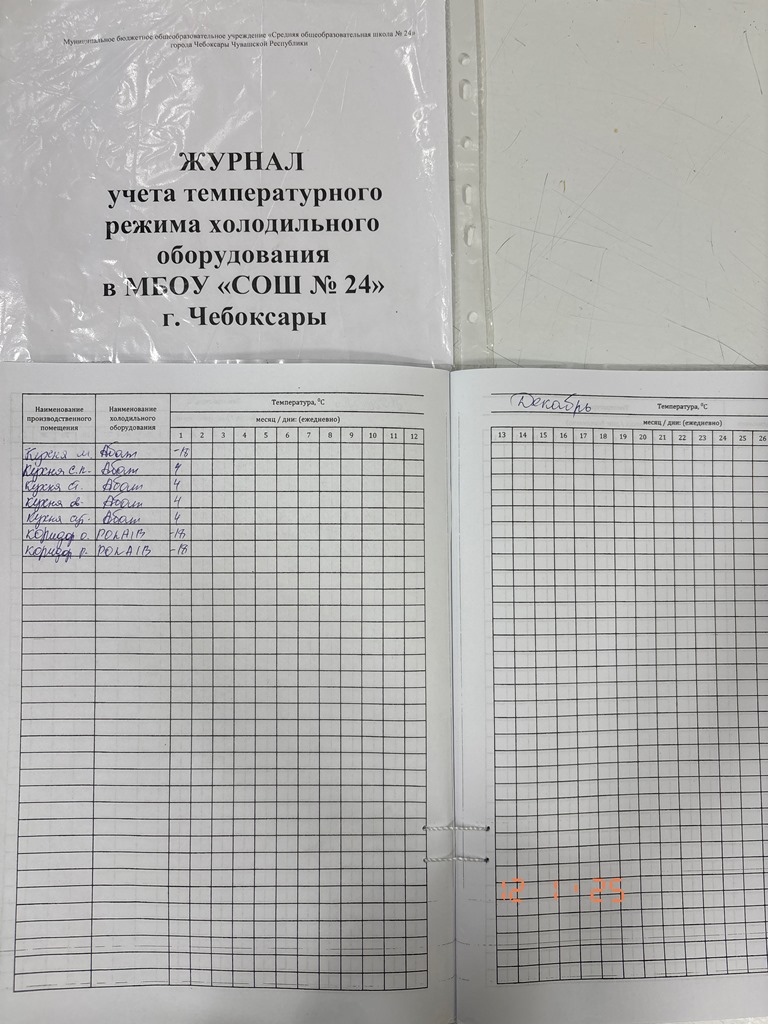 Муниципальное бюджетное общеобразовательное учреждение «Средняя общеобразовательная школа № 24»
города Чебоксары Чувашской Республики
ЖУРНАЛ
учета температурного
режима холодильного
оборудования
в МБОУ «СОШ № 24»
г. Чебоксары
Наименование производственного помещения
Наименование холодильного оборудования
Температура, ⁰С
месяц / дни: (ежедневно)
1 2 3 4 5 6 7 8 9 10 11 12
Кухня м. Абат -18
Кухня с.п. Абат 4
Кухня Абат 4
Кухня Абат 4
Кухня Абат 4
Коридор о. POLAIR -18
Коридор р. POLAIR -18
Декабрь
Температура, ⁰С
месяц / дни: (ежедневно)
13 14 15 16 17 18 19 20 21 22 23 24 25 26
12 1 '25